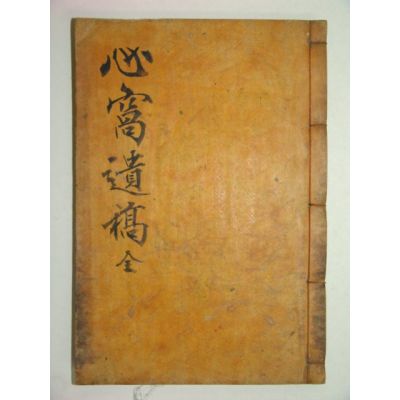 心窩遺稿 全